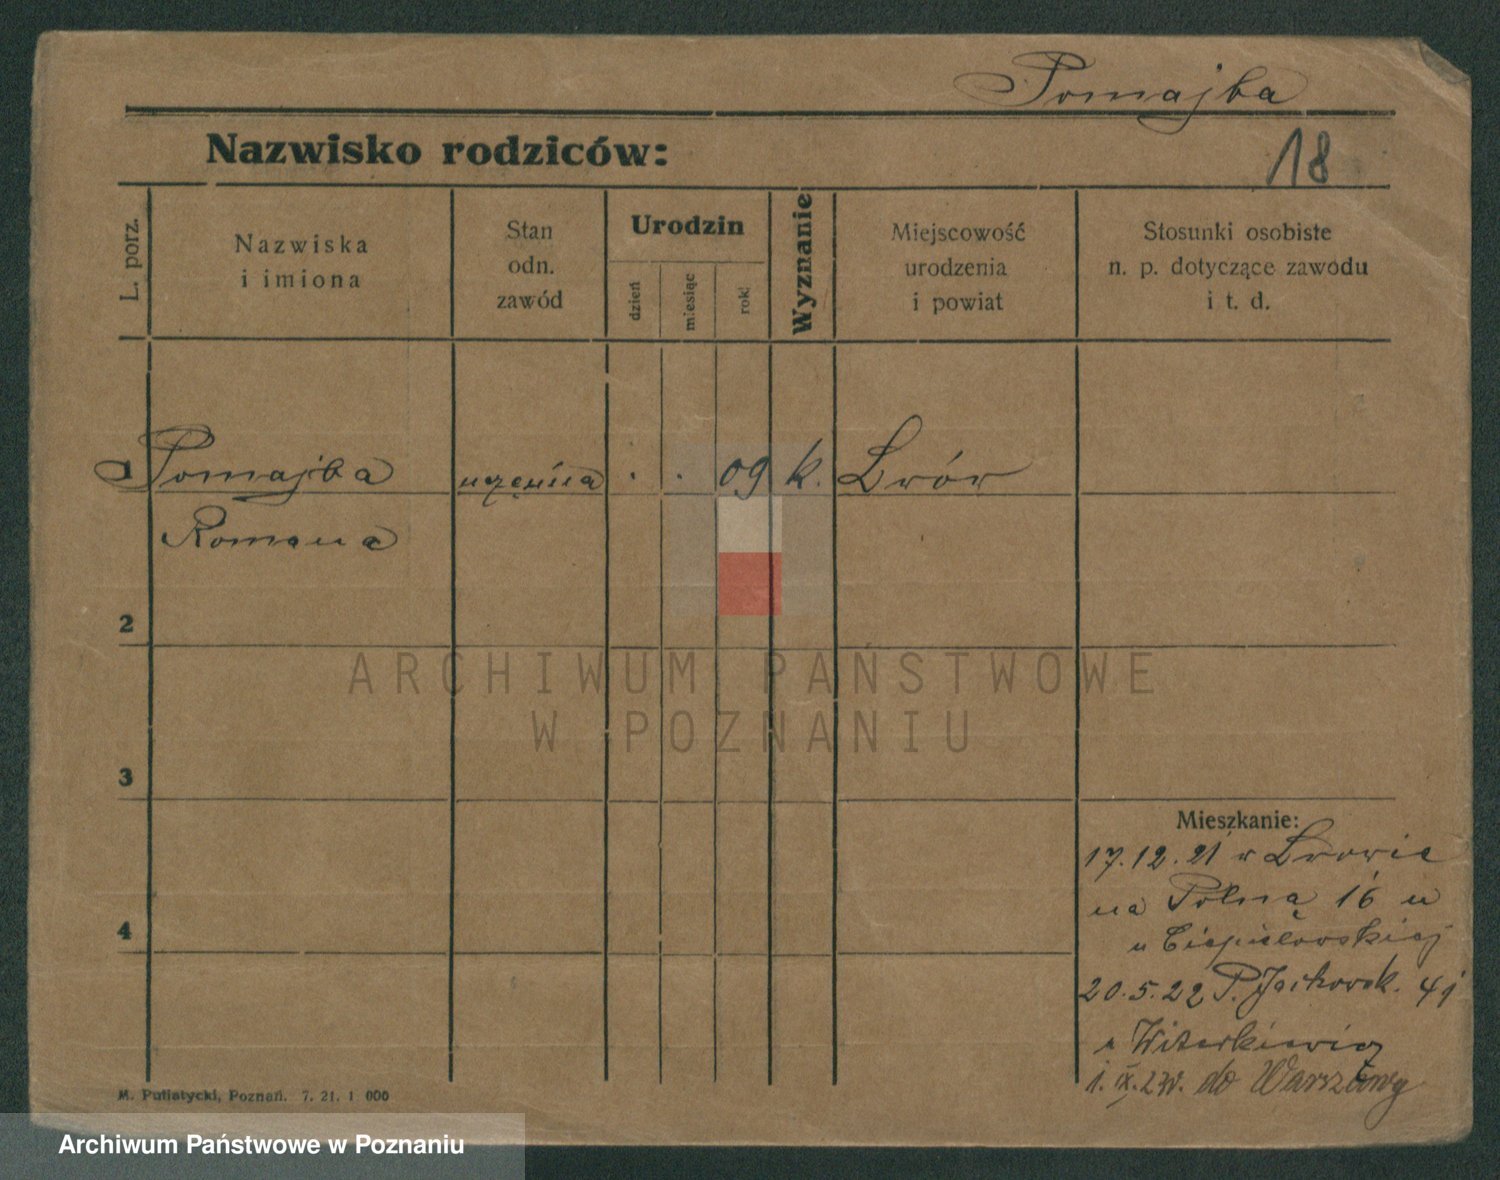 Pomajba
Nazwisko rodziców:
18
L. porz.
Nazwiska
i imiona
Stan
odn.
zawód
Urodzin
dzień
miesiąc
rok
Wyznanie
Miejscowość
urodzenia
i powiat
Stosunki osobiste
n. p. dotyczące zawodu
i t. d.
1 Pomajba uczenica . . 09 k. Lwów
Romana
2
ARCHIWUM PAŃSTWOWE
W POZNANIU
3
Mieszkanie:
17.12.21 w Lwowie
na Polna 16 u
4
u
20.5.22 P. Jackowsk. 41
u Witerkiewicz
1. IX. 2 do Warszawy
M. Putiatycki, Poznań. 7. 21. 1 000
Archiwum Państwowe w Poznaniu